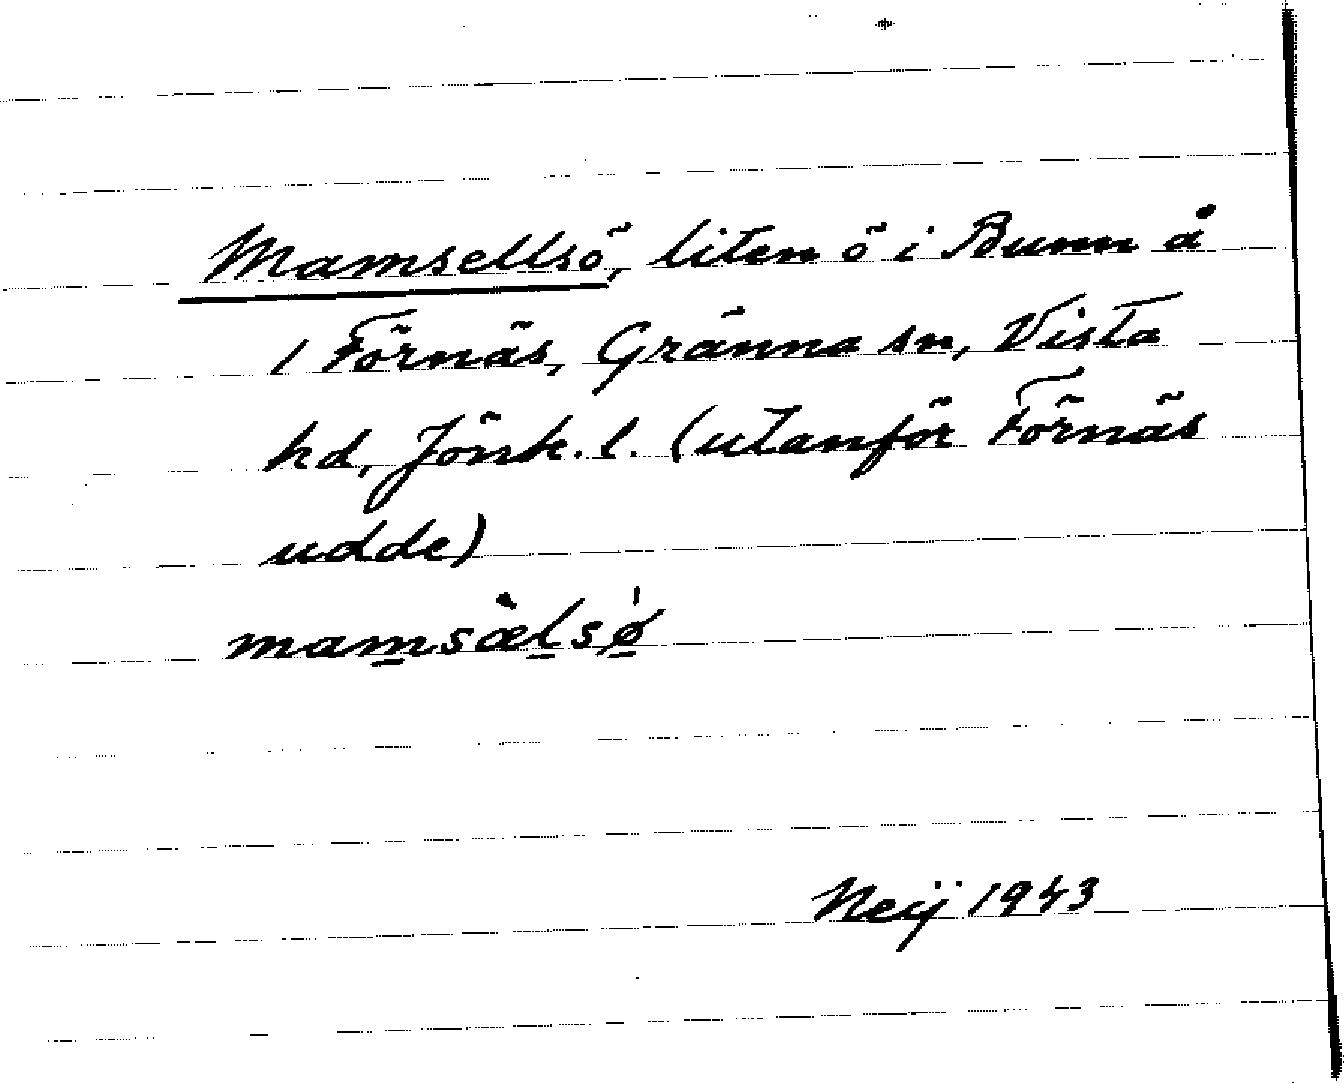 Mamsellsö, liten ö i Bunn å
1 Förnäs, Gränna sn, Vista
hd, Jönk. l. (utanför Förnäs
udde)
mam̲sæ̀l̲sø̲̍
Neij 1943